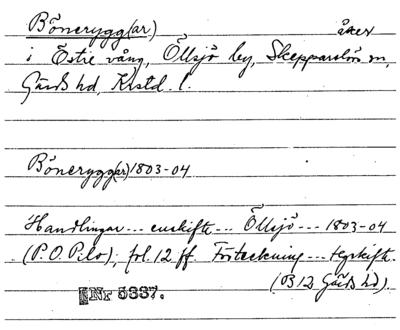 Bönerygg(ar) åker
i Östre vång, Öllsjö by, Skepparslövs sn,
Gärds hd, Krstd. l.
Bönerygg(ar) 1803-04
Handlingar --- enskifte --- Öllsjö --- 1803-04
(P.O. Pilo), fol. 12 ff. Förteckning ---
(B12 Gärds hd).
Nr 5337.